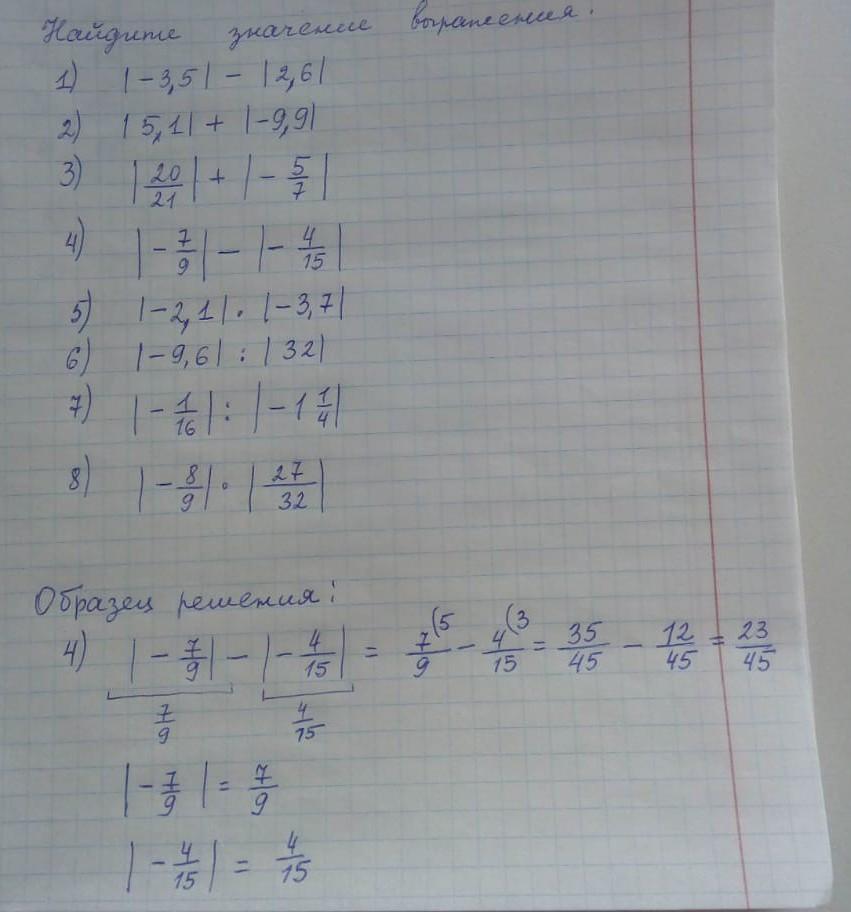 Найдите значение выражения.
1) |-3,5| - |2,6|
2) |5,1| + |-9,9|
3) |20/21| + |-5/7|
4) |-7/9| - |-4/15|
5) |-2,1| · |-3,7|
6) |-9,6| : |32|
7) |-1/16| : |-1 1/4|
8) |-8/9| · |27/32|
Образец решения:
4) |-7/9| - |-4/15| = 7/9 (5 - 4/15 (3 = 35/45 - 12/45 = 23/45
7/9 4/15
|-7/9| = 7/9
|-4/15| = 4/15